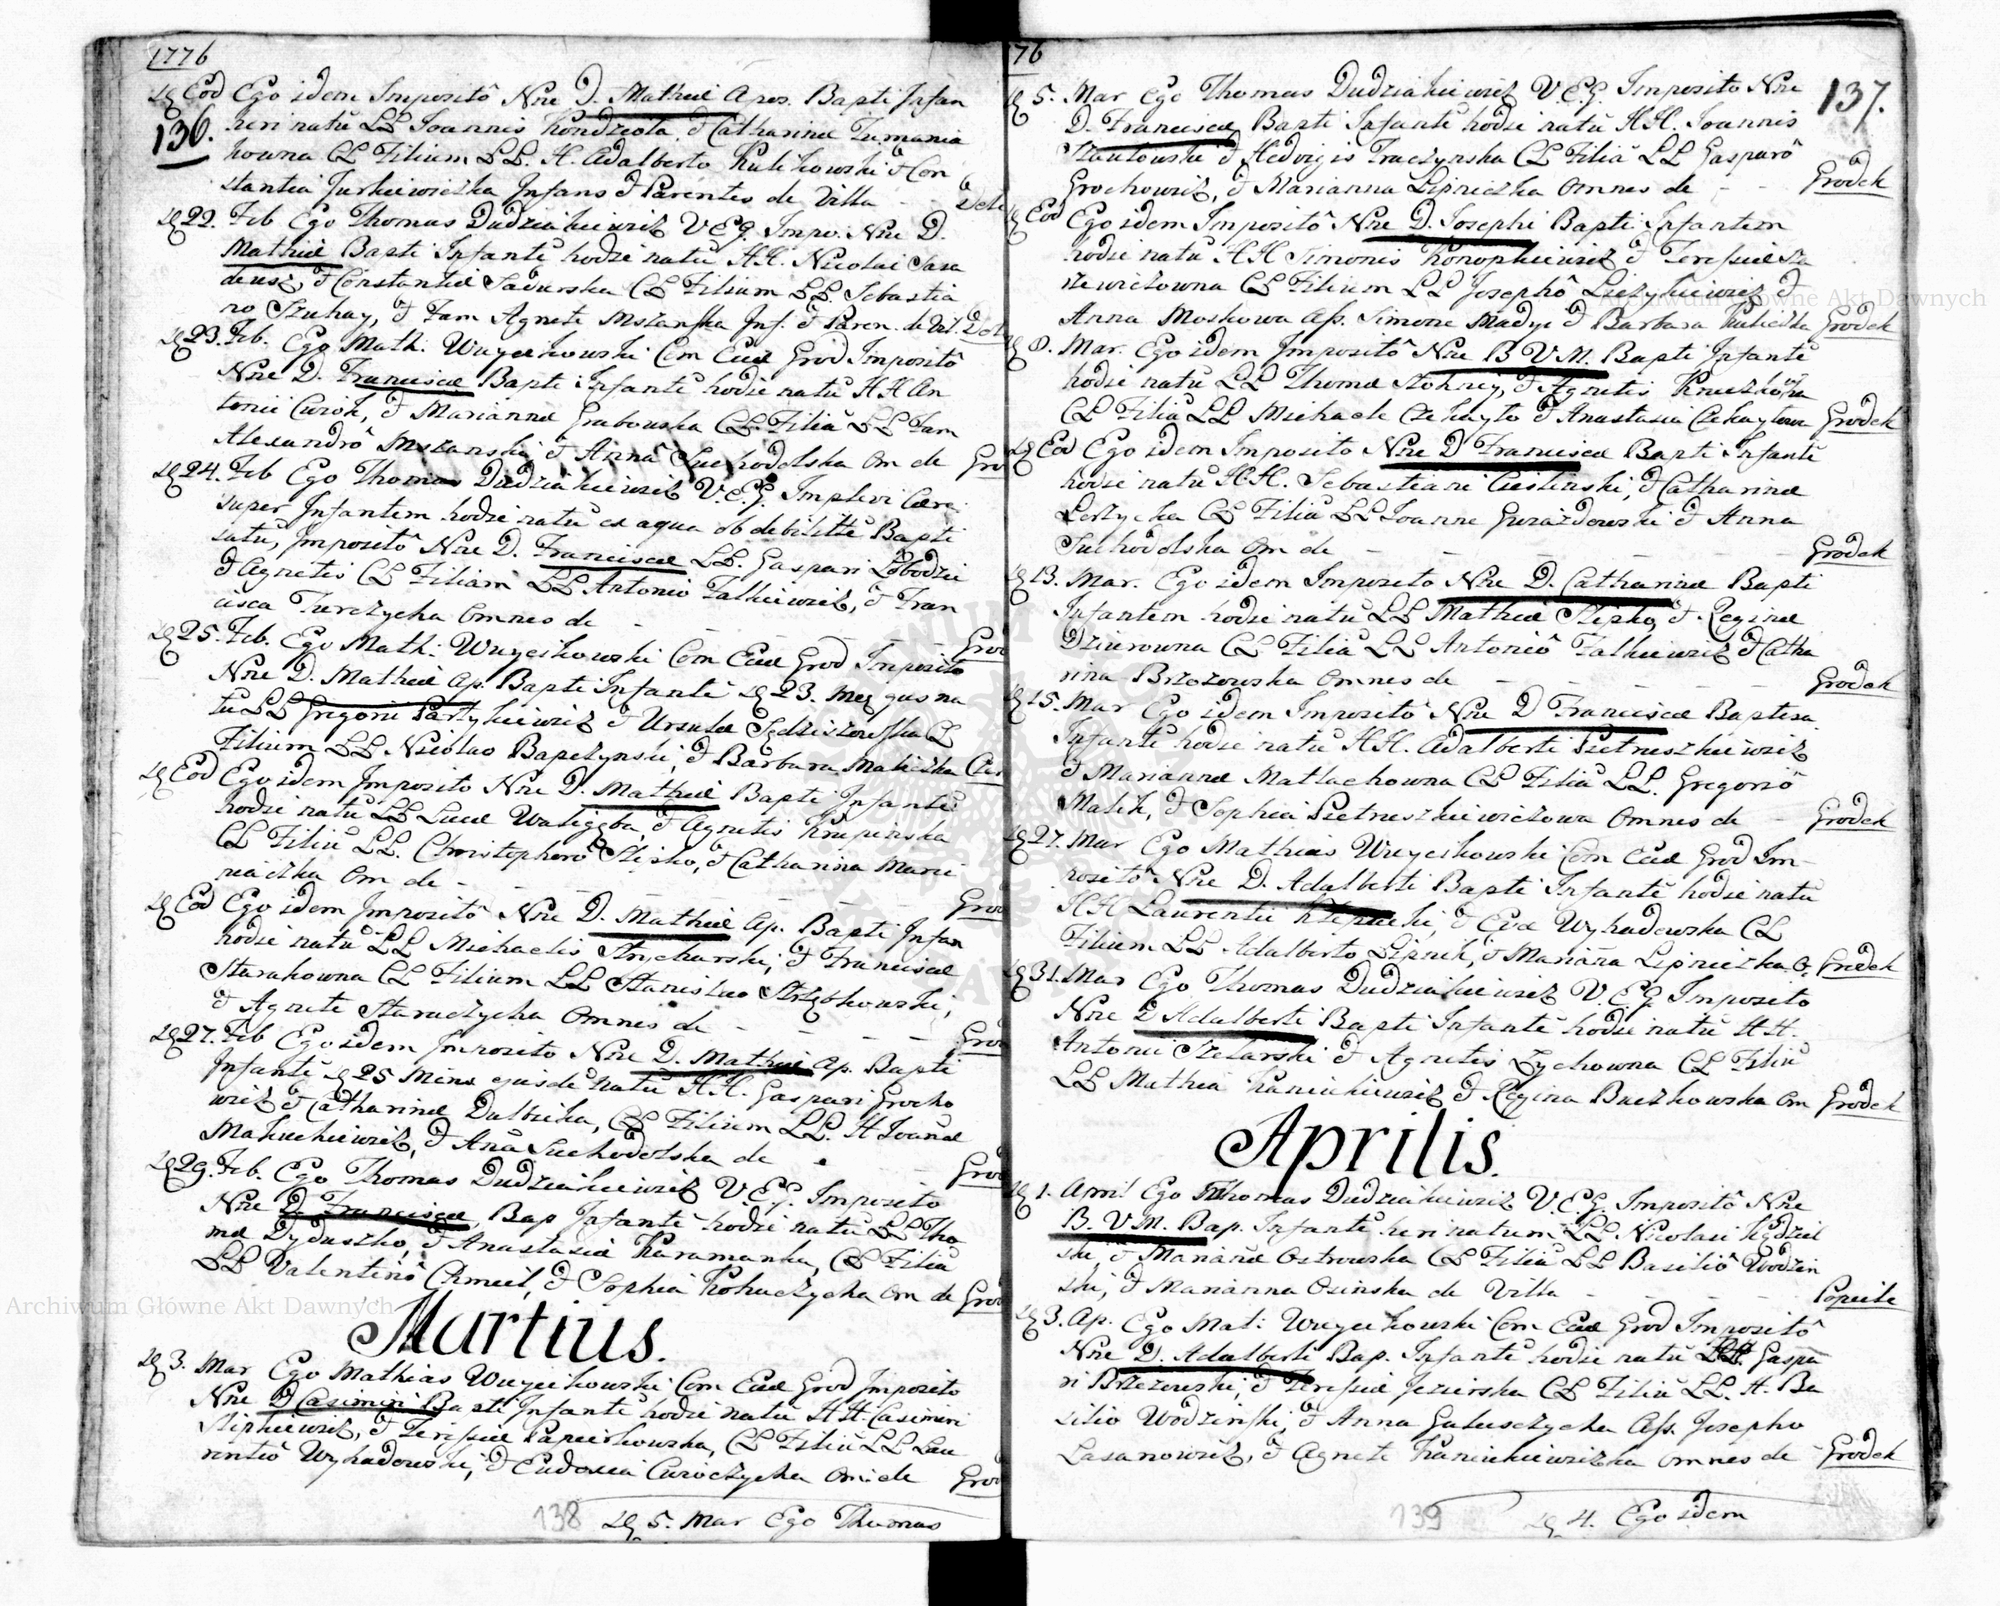 1776
136.
Eod Ego idem Imposito Nne D. Mathiæ Apos. Bapti Infan
heri natū LL Joannis Kondziola, & Catharinæ Tumania
kowna CL Filium LL. H. Adalberto Kulikowski & Con
stantia Jurkiewiczka Infans & Parentes de Villa
22. Feb Ego Thomas Dudziakiewicz V.E.G. Impo. Nne D.
Mathiæ Bapti Infantē hodie natū HH. Nicolai Sasa
deusz, & Constantiæ Sadurska CL Filium LL. Sebastia
no Szuhay, & Fam Agnete Mszanska Inf. & Paren. de Vil.
23. Feb. Ego Math: Woycihowski Com Ecæ Grod Imposito
Nne D. Franciscæ Bapti Infantē hodie natū HH An
tonii Curok, & Mariannæ Grabowska CL Filiā LL Fam
Alexandrô Mszanski, & Annâ Suchodolska Om de
24. Feb Ego Thomas Dudziakiewicz V.E.G. Implevi Cære:
super Infantem hodie natū ex aqua ob debilittē Bapti
satū, Impositô Nne D. Franciscæ LL. Gaspari Łobodzi
& Agnetis CL Filiam LL Antonio Falkiewicz, & Fran
cisca Turczycka Omnes de
25. Feb. Ego Math: Woycihowski Com Ecæ Grod Imposito
Nne D. Mathiæ Ap. Bapti Infantē 23. Mes ejus na
tū LL Gregorii Partykiewicz & Ursulæ Sędziszowska CL
Filium LL. Nicolao Bapczynski, & Barbara Maliczka
Eod Ego idem Imposito Nne D. Mathiæ Bapti Infantē
hodie natū LL Lucæ Waligęba, & Agnetis Krupinska
CL Filiū LL. Christophoro Slipko, & Catharina Marci
niaczka Om de
Eod Ego idem Impositô Nne D. Mathiæ Ap. Bapti Infan
hodie natū LL Michaelis Strycharski, & Franciscæ
Starakowna CL Filium LL Stanislao Strzębkowski,
& Agnete Staraczycha Omnes de
27. Feb Ego idem Imposito Nne D. Mathiæ Ap. Bapti
Infantē 25 Mens ejusdē natū HH. Gaspari Grocho
wicz & Catharinæ Dulbicka, CL Filium LL. H Joanne
Makuchiewicz, & Anā Suchodolska de
29. Feb. Ego Thomas Dudziakiewicz V.E.G. Imposito
Nne D. Franciscæ, Bap Infantē hodie natū LL Tho
mæ Dyduszko, & Anastasiæ Karamanka, CL Filiā
LL Valentinô Chmiel, & Sophiâ Kohuczycha Om de
Martius.
3. Mar Ego Mathias Woyciikowski Com Ecæ Grod Imposito
Nne D Casimiri Bapti Infantē hodie natū HH. Casimiri
Slipkiewicz, & Teressiæ Papierkowska, CL Filiū LL Lau
rentiô Wykadowski, & Eudoxia Curoczycha Om de
138
5. Mar Ego Thomas
76
137.
5. Mar Ego Thomas Dudziakiewicz V.E.G. Imposito Nne
D. Franciscæ Bapti Infantē hodie natū HH. Joannis
& Hedvigis Traczynska CL Filiā LL Gasparô
Grochowicz, & Marianna Lipniczka Omnes de - - Grodek
Eod Ego idem Impositô Nne D. Josephi Bapti Infantem
hodie natū HH Simonis Konopkiewicz & Teressiæ Sta
szewiczowna CL Filium LL Josephô Liczykiewicz &
Anna Moskowa Ass. Simone Madyi & Barbara Kuliczka Grodek
8. Mar. Ego idem Impositô Nne B.V.M. Bapti Infantē
hodie natū LL Thomæ Stohniy, & Agnetis
CL Filiū LL Michaele Czekayło & Anastasia Czekayłowa Grodek
Eod Ego idem Imposito Nne D Franciscæ Bapti Infantē
hodie natū HH. Sebastiani Cieslinski, & Catharinæ
CL Filiā LL Joanne Gwiazdowski & Anna
Suchodolska Om de - - - Grodek
13. Mar. Ego idem Imposito Nne D. Catharinæ Bapti
Infantem hodie natū LL Mathiæ Slipko, & Reginæ
Dziurowna CL Filiā LL Antoniô Falkiewicz & Catha
rina Brzozowska Omnes de - - - Grodek
15. Mar Ego idem Impositô Nne D Franciscæ Baptisa
Infantē hodie natū HH. Adalberti Pietruszkiewicz
& Mariannæ Matlachowna CL Filiā LL. Gregoriô
Malik, & Sophia Pietruszkiewiczowa Omnes de - Grodek
27. Mar Ego Mathias Woyciikowski Com Ecæ Grod Im-
positô Nne D. Adalberti Bapti Infantē hodie natū
HH Laurentii Krzepicki, & Evæ Wykadowska CL
Filium LL Adalberto Lipnik, & Marianna Lipniczka O. Grodek
31. Mar Ego Thomas Dudziakiewicz V.E.G Imposito
Nne D Adalberti Bapti Infantē hodie natū HH.
Antonii Szelarski & Agnetis Zychowna CL Filiū
LL Mathia Kaniukiewicz & Regina Buczkowska Om Grodek
Aprilis.
1. April Ego Thomas Dudziakiewicz V.E.G. Impositô Nne
B.V.M. Bap. Infantē heri natum LL. Nicolai Kędziel
ski, & Mariannæ Ostrowska CL Filiā LL Basiliô Wodzin
ski, & Marianna Osinska de Villa - - - Popiele
3. Ap. Ego Mat: Woyciikowski Com Ecæ Grod Impositô
Nne D. Adalberti Bap. Infantē hodie natū HH. Gaspa
ri Brzezowski, & Teressiæ Jezierska CL Filiū LL. H. Ba
silio Wodzinski, & Anna Galusczycha Ass. Josepho
Lasanowicz, & Agnete Kaniukiewiczka Omnes de Grodek
139
4. Ego idem
Archiwum Główne Akt Dawnych
Archiwum Główne Akt Dawnych